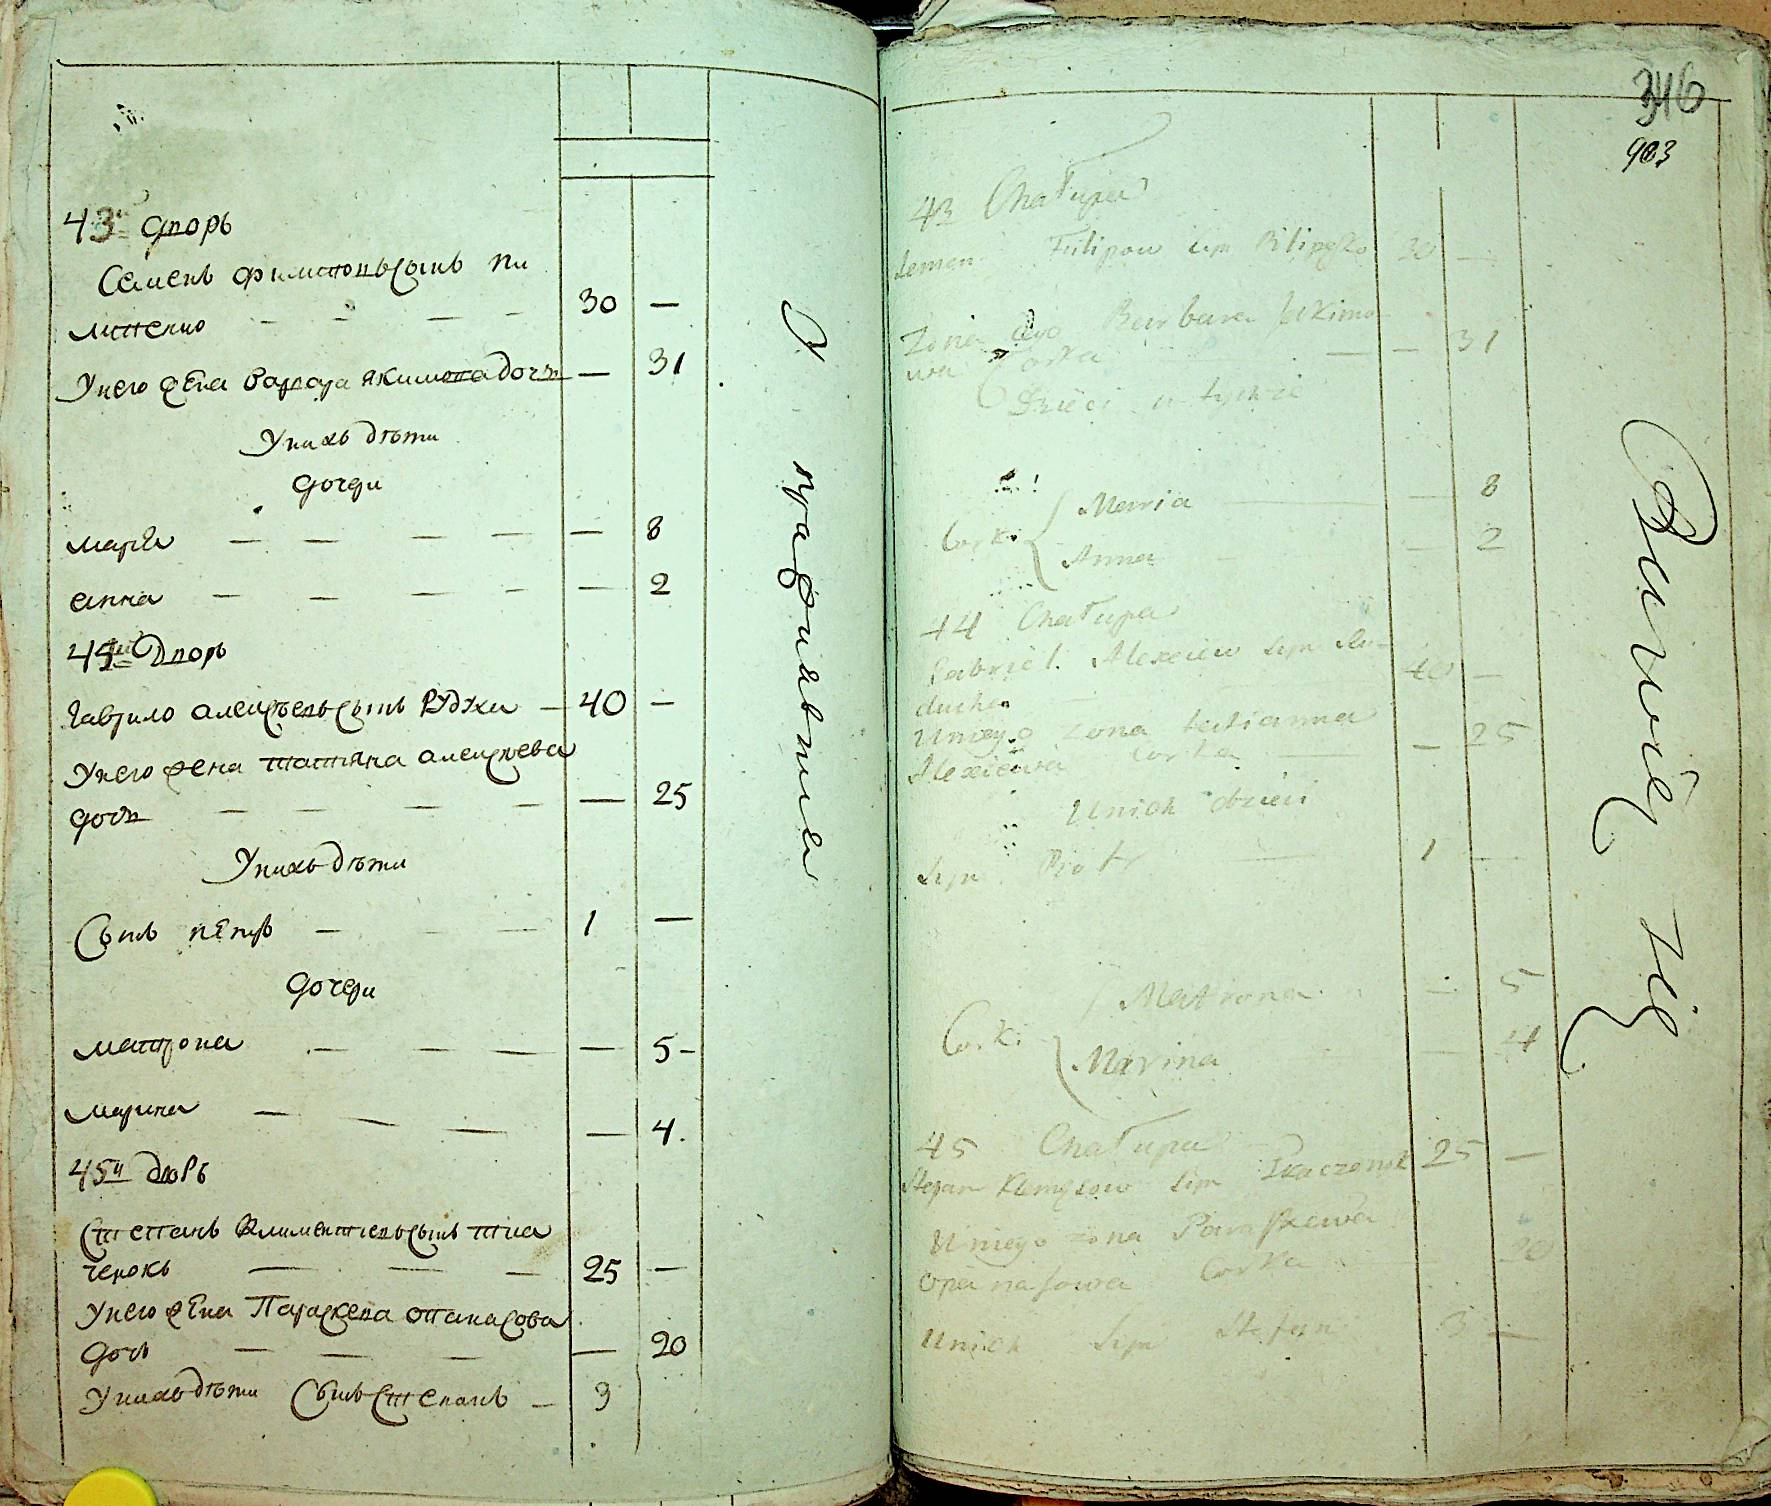 43й дворъ
Семенъ Филиповъ сынъ Пи
липенко — — — — 30 —
У него жена Варвара Якимова дочь — 31
У нихъ дѣти
дочери
Марія — — — — — 8
Анна — — — — — 2
44й дворъ
Гаврило Алексѣевъ сынъ Рудуха — 40 —
У него жена Татьяна Алексѣева
дочь — — — — — 25
У нихъ дѣти
Сынъ Петръ — — — 1 —
дочери
Матрона — — — — 5 -
Марина — — — — 4.
45й дворъ
Степанъ Климентиевъ сынъ Тка
ченокъ — — — 25 —
У него жена Параскева Опанасова
дочь — — — — 20
У нихъ дѣти Сынъ Степанъ — 3
346
903
43 Chałupa
Semen Filipow syn Pilipęko 30 —
Zona ego Barbara Jakimo-
wa Corka — — 31
Dzieci u tychże
Corki Marria — 8
Anna — 2
44 Chałupa
Gabriel Alexiew syn Ru-
ducha 40 —
U niego Zona Tatianna
Alexiewa Corka — — 25
U nich dzieci
Syn Piotr — 1 —
Corki Matrona — 5
Marina — 4
45 Chałupa
Stepan Klemęsow syn Tkaczonok 25 —
U niego zona Paraskewa
Opanasowa Corka — 20
U nich Syn Stefan 3 —